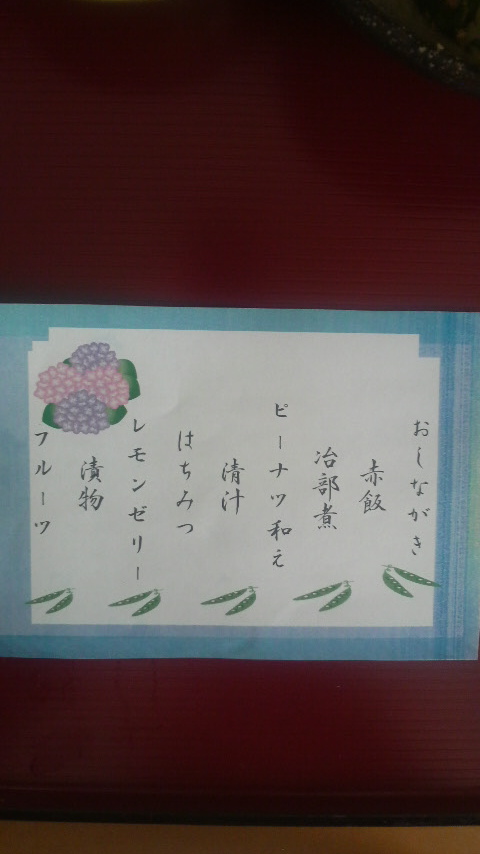 おしながき
赤飯
冶部煮
ピーナツ和え
清汁
はちみつ
レモンゼリー
漬物
フルーツ